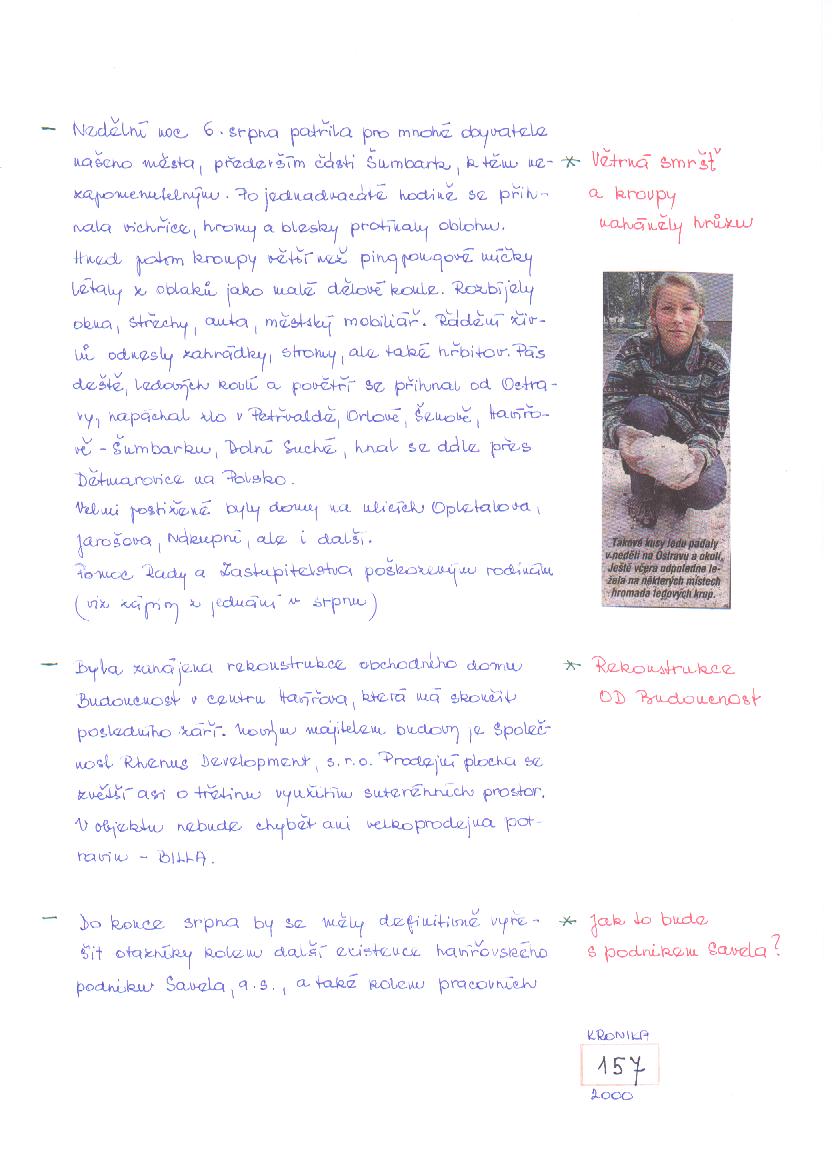 – Nedělní noc 6. srpna patřila pro mnohé obyvatele
našeho města, především části Šumbark, k těm ne-
zapomenutelným. Po jednadvacáté hodině se přih-
nala vichřice, hromy a blesky protínaly oblohu.
Hned potom kroupy větší než pingpongové míčky
létaly z oblaků jako malé dělové koule. Rozbíjely
okna, střechy, auta, městský mobiliář. Řádění živ-
lů odnesly zahrádky, stromy, ale také hřbitov. Pás
deště, ledových koulí a povětří se přihnal od Ostra-
vy, napáchal zlo v Petřvaldě, Orlové, Šenově, Havířo-
vě - Šumbarku, Dolní Suché, hnal se dále přes
Dětmarovice na Polsko.
Velmi postižené byly domy na ulicích Opletalova,
Jarošova, Nákupní, ale i další.
Pomoc Rady a Zastupitelstva poškozeným rodinám
(viz zápisy z jednání v srpnu)
* Větrná smršť
a kroupy
naháněly hrůzu
Takové kusy ledu padaly
v neděli na Ostravu a okolí.
Ještě včera odpoledne le-
žela na některých místech
hromada ledových krup.
– Byla zahájena rekonstrukce obchodního domu
Budoucnost v centru Havířova, která má skončit
posledního září. Novým majitelem budovy je společ-
nost Rhenus Development, s.r.o. Prodejní plocha se
zvětší asi o třetinu využitím suterénních prostor.
V objektu nebude chybět ani velkoprodejna pot-
ravin - BILLA.
* Rekonstrukce
OD Budoucnost
– Do konce srpna by se měly definitivně vyře-
šit otazníky kolem další existence havířovského
podniku Savela, a.s., a také kolem pracovních
* Jak to bude
s podnikem Savela?
KRONIKA
157
2000